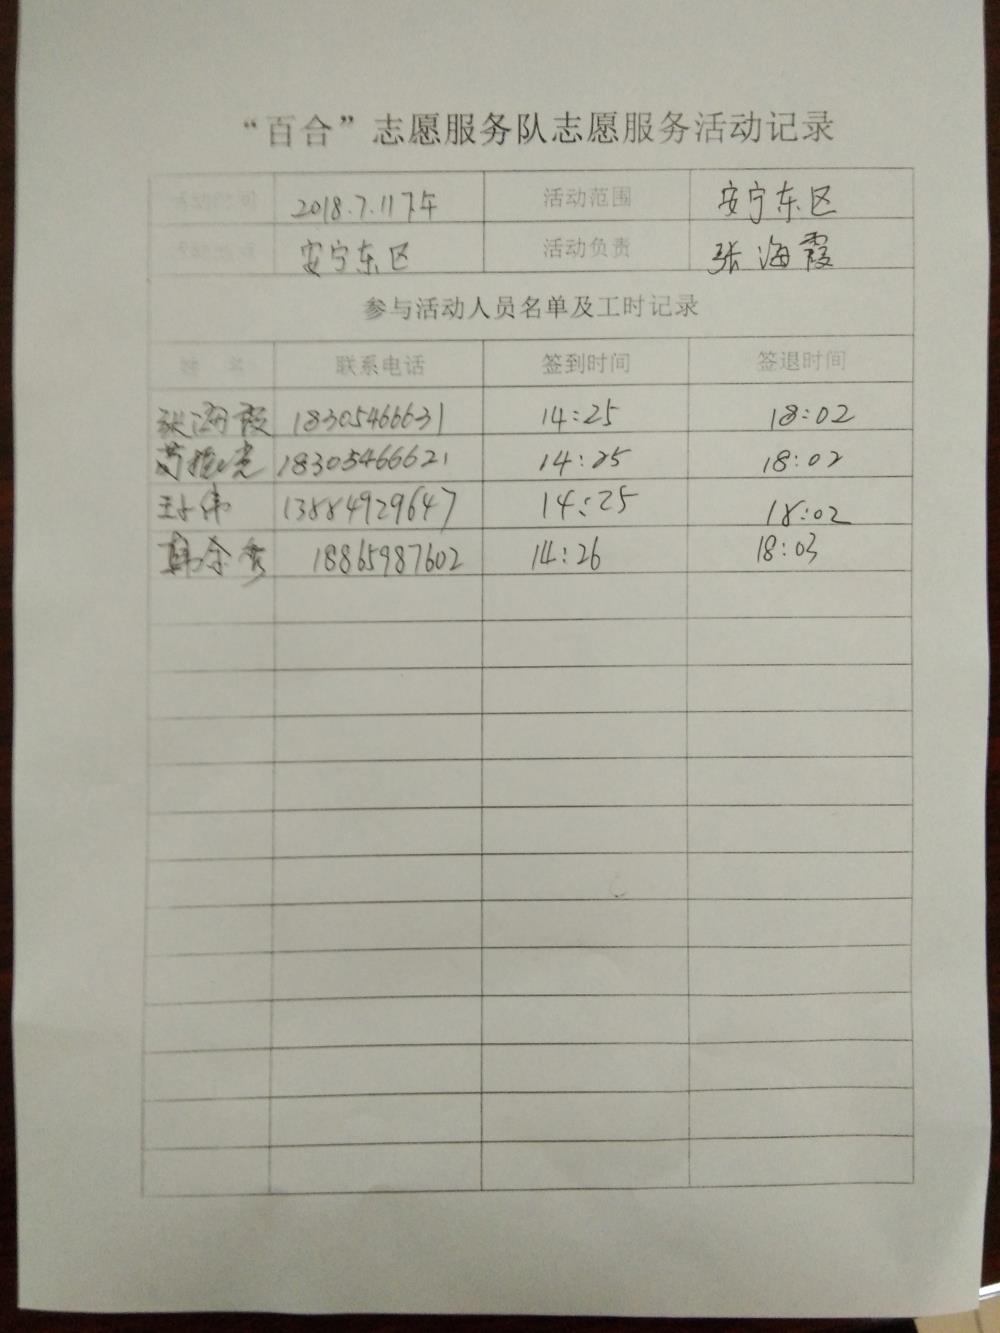 “百合”志愿服务队志愿服务活动记录
2018.7.11下午 活动范围 安宁东区
安宁东区 活动负责 张海霞
参与活动人员名单及工时记录
姓名 联系电话 签到时间 签退时间
张海霞 18305466631 14:25 18:02
18305466621 14:25 18:02
王伟 13884929647 14:25 18:02
韩余秀 18865987602 14:26 18:03